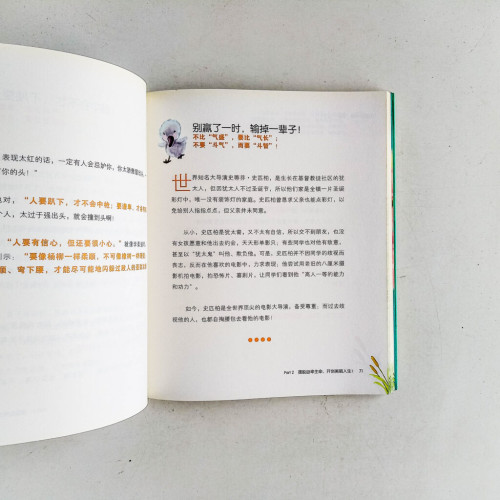 表现太红的话，一定有人会忌妒你，你太
你的头！”
对，“人要趴下，才不会中枪；要谦卑，才
个人，太过于强出头，就会撞到头啊！
“人要有信心，但还要很小心。”
示：“要像杨柳一样柔顺，不可像
腰、弯下腰，才能尽可能地闪躲过敌人的
别赢了一时，输掉一辈子！
不比“气盛”，要比“气长”，
不要“斗气”，而要“斗智”！
世界知名大导演史蒂芬·史匹柏，是生长在基督教徒社区的犹
太人，但因犹太人不过圣诞节，所以他们都是全镇一片圣诞
影灯中，唯一没有装饰灯的家庭。史匹柏曾恳求父亲也能点影灯，以
免给别人指指点点，但父亲并未同意。
从小，史匹柏是犹太裔，又不太有自信，所以交不到朋友，也没
有女孩愿意和他出去约会，天天形单影只。有些同学也对他有敌意，
甚至以“犹太鬼”叫他、欺负他。可是，史匹柏并不因同学的歧视而
丧志，反而在他喜欢的电影中，力求表现，他尝试用家里的八厘米摄
影机拍电影，拍恐怖片、喜剧片，让同学们看到他“高人一等的能力
和动力”。
如今，史匹柏是全世界顶尖的电影大导演，备受尊重，而过去歧
视他的人，也都在掏腰包去看他的电影！
Part 2 跳脱战斗生命，开创美丽人生！ 71